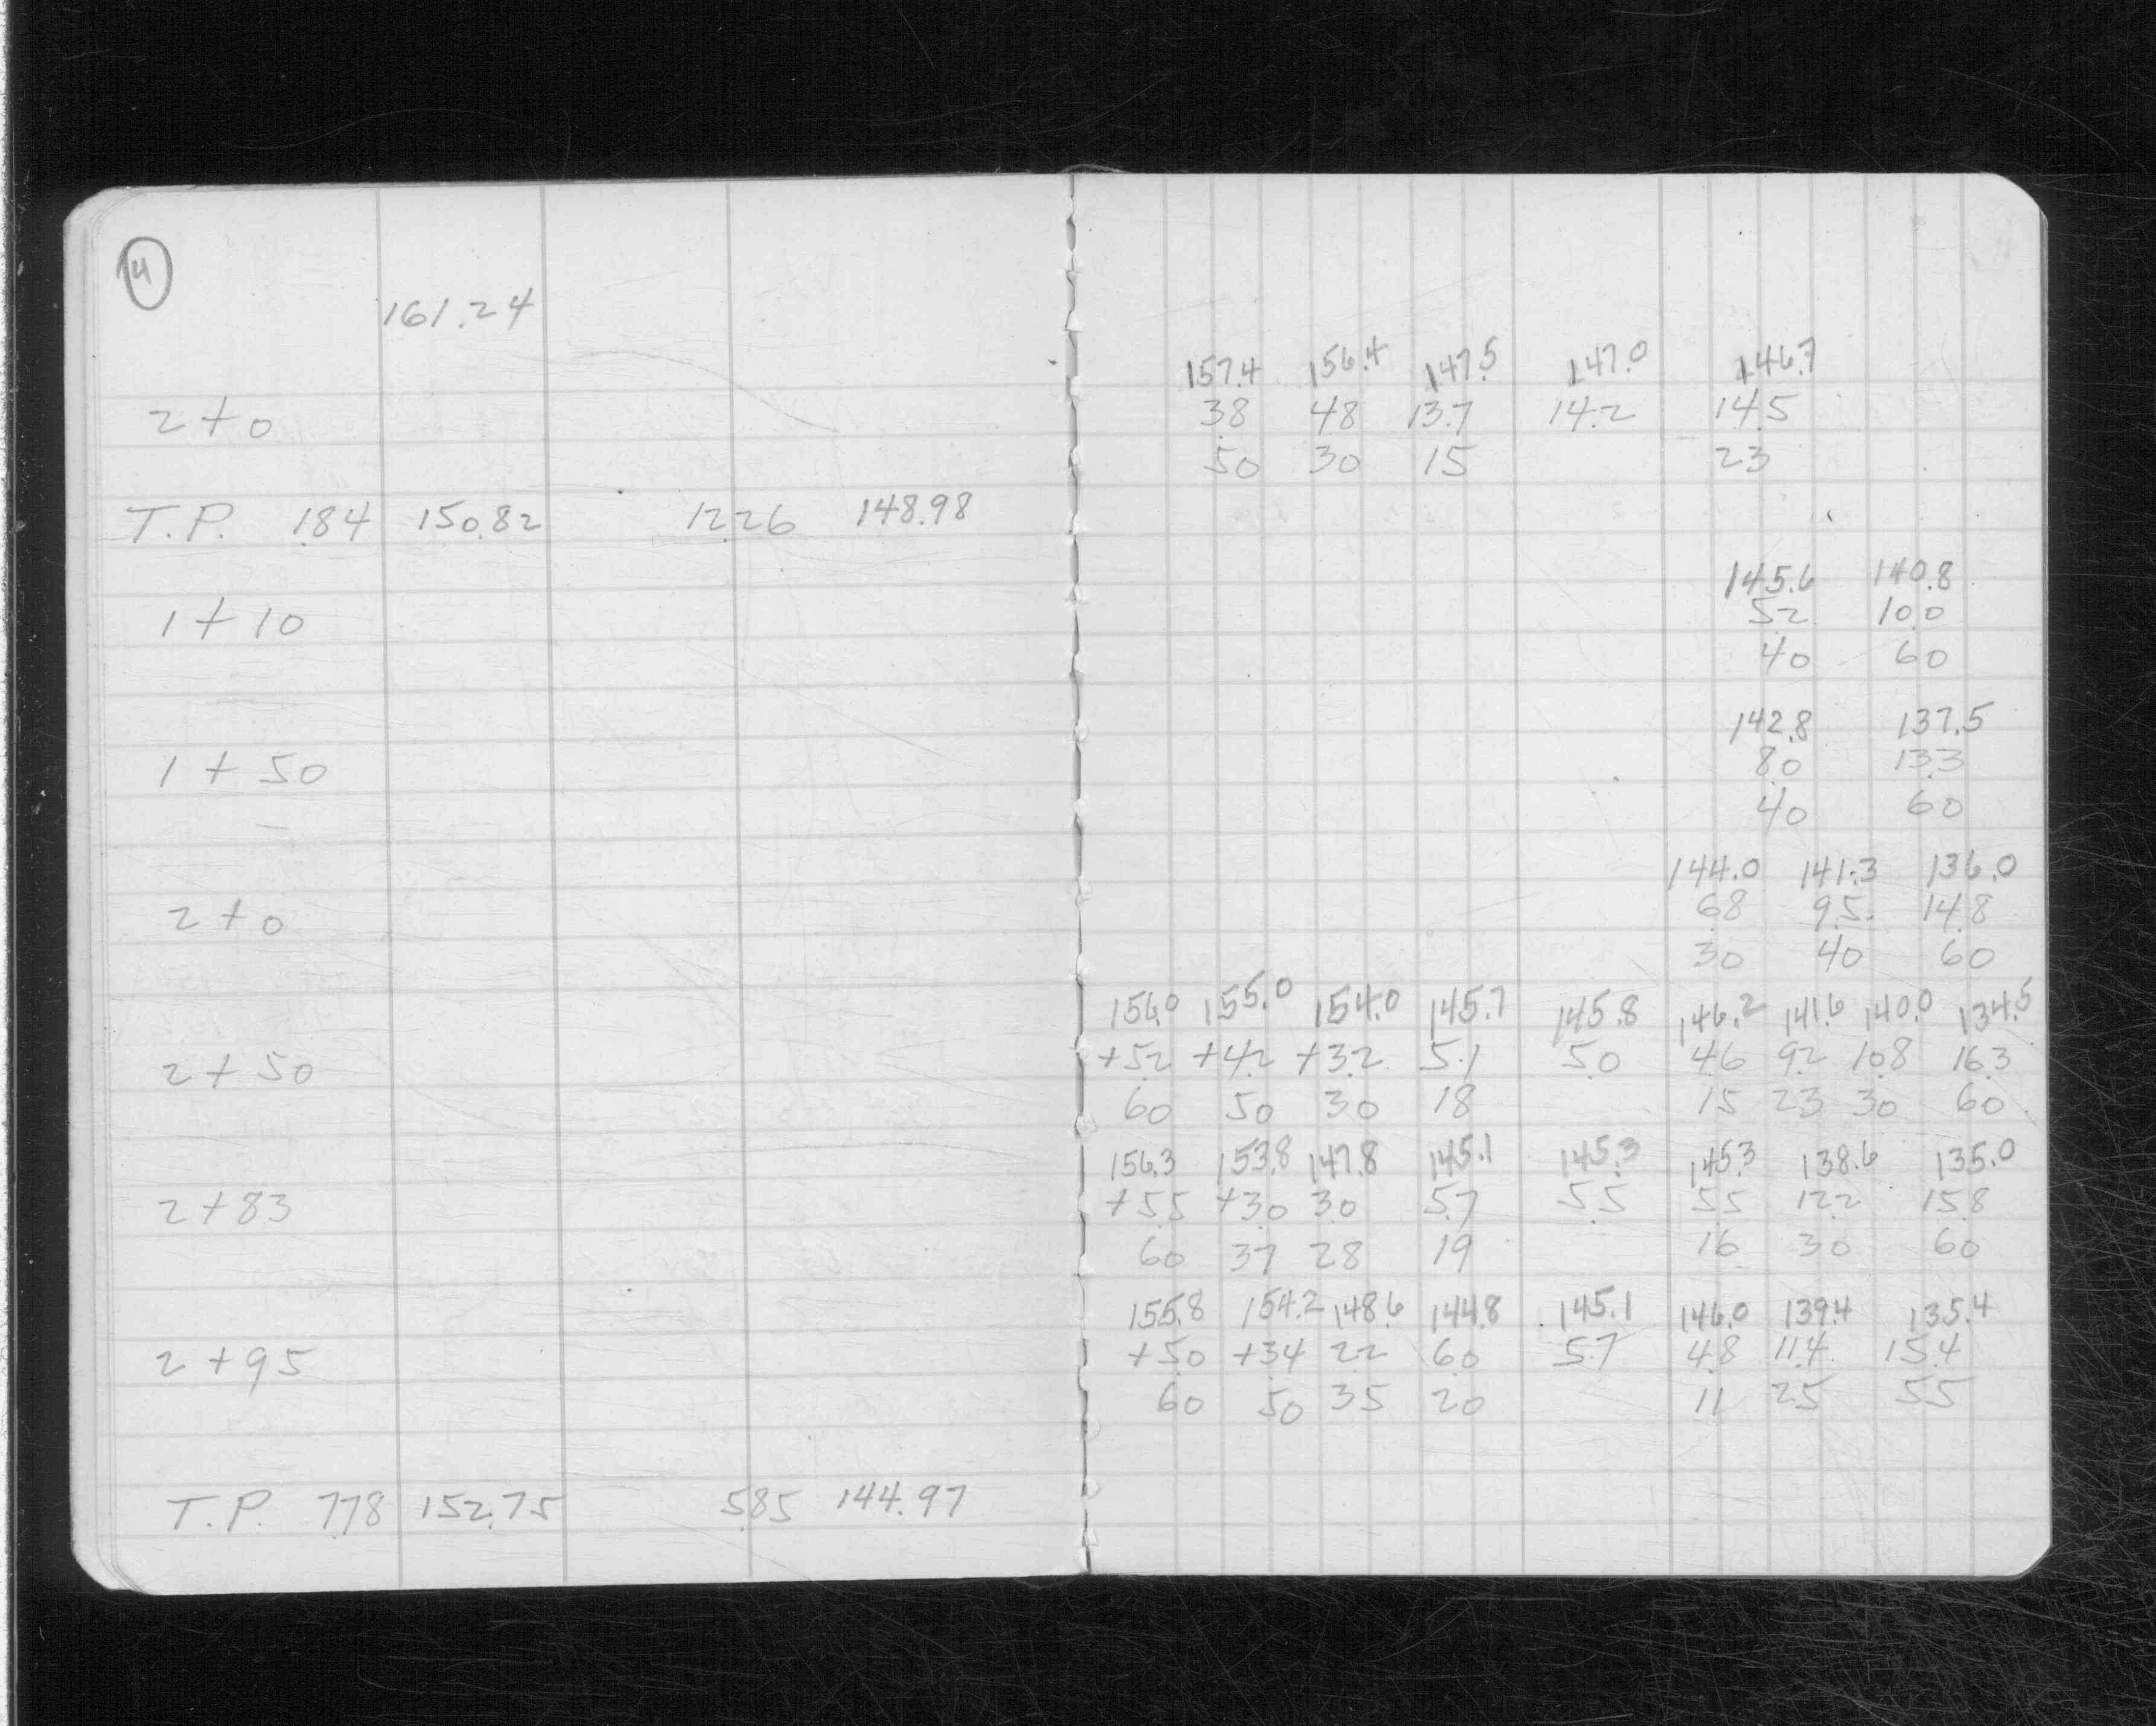 4
161.24
157.4 156.4 147.5 147.0 146.7
2+0 3.8 4.8 13.7 14.2 14.5
50 30 15 23
T.P. 1.84 150.82 12.26 148.98
145.6 140.8
1+10 5.2 10.0
40 60
142.8 137.5
1+50 8.0 13.3
40 60
144.0 141.3 136.0
2+0 6.8 9.5 14.8
30 40 60
156.0 155.0 154.0 145.7 145.8 146.2 141.6 140.0 134.5
2+50 +5.2 +4.2 +3.2 5.1 5.0 4.6 9.2 10.8 16.3
60 50 30 18 15 23 30 60
156.3 153.8 147.8 145.1 145.3 145.3 138.6 135.0
2+83 +5.5 +3.0 3.0 5.7 5.5 5.5 12.2 15.8
60 37 28 19 16 30 60
155.8 154.2 148.6 144.8 145.1 146.0 139.4 135.4
2+95 +5.0 +3.4 2.2 6.0 5.7 4.8 11.4 15.4
60 50 35 20 11 25 55
T.P. 7.78 152.75 5.85 144.97